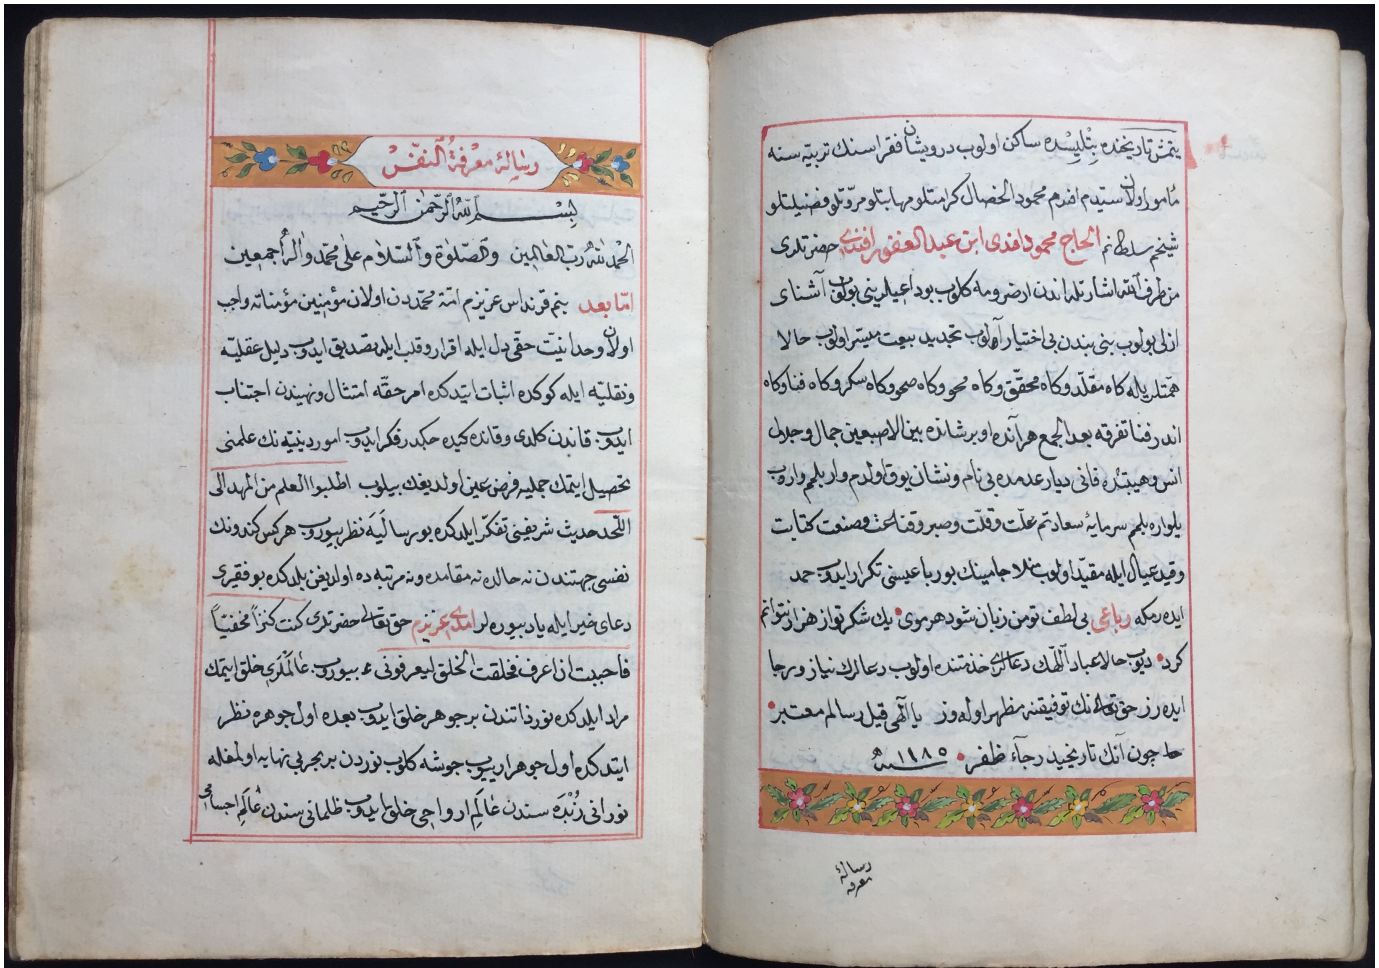 يتمش تاريخنده بتليسده ساكن اولوب درويشان فقراسنك تربيه سنه
مأمور اولان سيدم افندم محمود الخصال كرامتلو مهابتلو مروتلو فضيلتلو
شيخم سلطانم الحاج محمود افندى ابن عبد الغفور افندى حضرتلرى
من طرف الله اشارتله اندن ارضرومه كلوب بو داعيلرينى بولوب آشناى
ازلى بولوب بنى بندن بى اختيار آلوب تجديد بيعت ميسر اولوب حالا
همتلريله كاه مقلد وكاه محقق وكاه محو وكاه صحو وكاه سكر وكاه فنا وكاه
اندر فنا تفرقه بعد الجمع هر آنده او بر شانده بين الاصبعين جمال وجلال
انس وهيبتده فانى ديار عدمده بى نام ونشان يوق اولدم وار بلمم واروب
يلواره بلمم سرمايۀ سعادتم علت وقلت وصبر وقناعت وصنعت كتابت
وقيد عيال ايله مقيد اولوب منلا جامينك بو رباعيسنى تكرار ايدوب حمد
ايده رمكه رباعى بى لطف تو من زبان شود هر موى يك شكر تو از هزار نتوانم
كرد ديوب حالا عباد اللهك دعالرى خدمتنده اولوب دعالرك نياز ورجا
ايده رز حق تعالى نك توفيقنه مظهر اوله وز يا الهى قيل رسالم معتبر
چون آنك تاريخيدر جآء ظفر سنه ١١٨٥
رسالۀ
معرفه
رسالۀ معرفة النفس
بسم الله الرحمن الرحيم
الحمد لله رب العالمين والصلوة والسلام على محمد وآله اجمعين
اما بعد بنم قرنداس عزيزم امة محمددن اولان مؤمنين مؤمناته واجب
اولان وحدانيت حقى دل ايله اقرار وقلب ايله تصديق ايدوب دليل عقليه
ونقليه ايله كوكده اثبات ايتدكده امر حقه امتثال ونهيندن اجتناب
ايدوب قاندن كلدى وقانده كيده جكدر فكر ايدوب امور دينيه نك علمنى
تحصيل ايتمك جمليه فرض عين اولديغك بيلوب اطلبوا العلم من المهد الى
اللحد حديث شريفنى تفكر ايلدكده بو رساليه نظر بيوروب هركس كندونك
نفسى جهتندن نه حالده نه مقامده ونه مرتبه ده اولديغن بلدكده بو فقيرى
دعاى خير ايله ياد بيوره لر امدى عزيزم حق تعالى حضرتلرى كنت كنزا مخفيا
فاحببت ان اعرف فخلقت الخلق ليعرفونى بيوروب عالملرى خلق ايتمك
مراد ايلدكده نور ذاتندن بر جوهر خلق ايدوب بعده اول جوهره نظر
ايتدكده اول جوهر اريوب جوشه كلوب نوردن بر بحر بى نهايه اولمغله
نورانى زبده سندن عالم ارواحى خلق ايدوب ظلمانى سندن عالم اجسامى